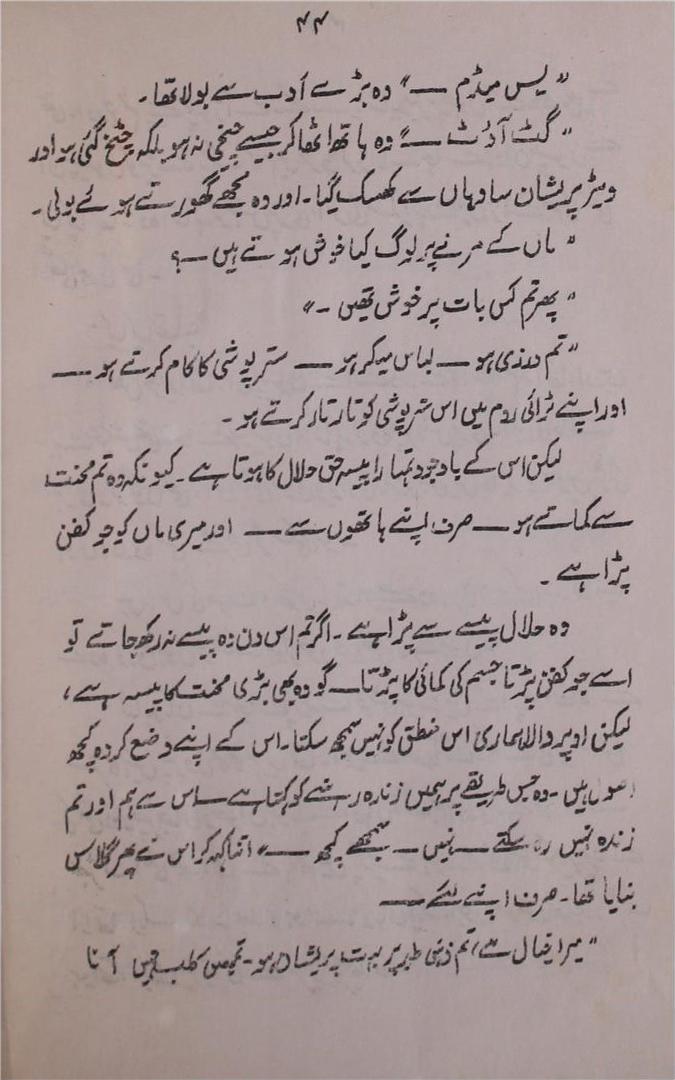 ۴۴
" یس میڈم ــــ " وہ بڑے اَدب سے بولا تھا۔
" گٹ آؤٹ ــــ " وہ ہاتھ اٹھا کر جیسے چیخی نہ ہو بلکہ چٹخ گئی ہو اور
ویٹر پریشان سا وہاں سے کھسک گیا۔ اور وہ مجھے گھورتے ہوئے بولی۔
" ماں کے مرنے پر لوگ کیا خوش ہوتے ہیں ــ ؟
" پھر تم کس بات پر خوش تھیں ۔"
" تم درزی ہو ــــ لباس میکر ہو ــــ ستر پوشی کا کام کرتے ہو ــــ
اور اپنے ٹرائی روم میں اس ستر پوشی کو تار تار کرتے ہو ۔
لیکن اس کے باوجود تمہارا پیسہ حق حلال کا ہوتا ہے ۔ کیونکہ وہ تم محنت
سے کماتے ہو ــــ صرف اپنے ہاتھوں سے ــــ اور میری ماں کو جو کفن
پڑا ہے ۔
وہ حلال پیسے سے پڑا ہے ۔ اگر تم اس دن وہ پیسے نہ رکھ جاتے تو
اسے جو کفن پڑتا جسم کی کمائی کا پڑتا ــ گو وہ بھی بڑی محنت کا پیسہ ہے ،
لیکن اوپر والا ہماری اس منطق کو نہیں سمجھ سکتا۔ اس کے اپنے وضع کردہ کچھ
اصول ہیں ۔ وہ جس طریقے پر ہمیں زندہ رہنے کو کہتا ہے ــ اس سے ہم اور تم
زندہ نہیں رہ سکتے ــ نہیں ــ سمجھے کچھ ــــ " اتنا کہہ کر اس نے پھر گلاس
بنایا تھا ۔ صرف اپنے لئے ــــ
" میرا خیال ہے ، تم ذہنی طور پر بہت پریشان ہو ۔ تمہیں کلب نہیں آنا